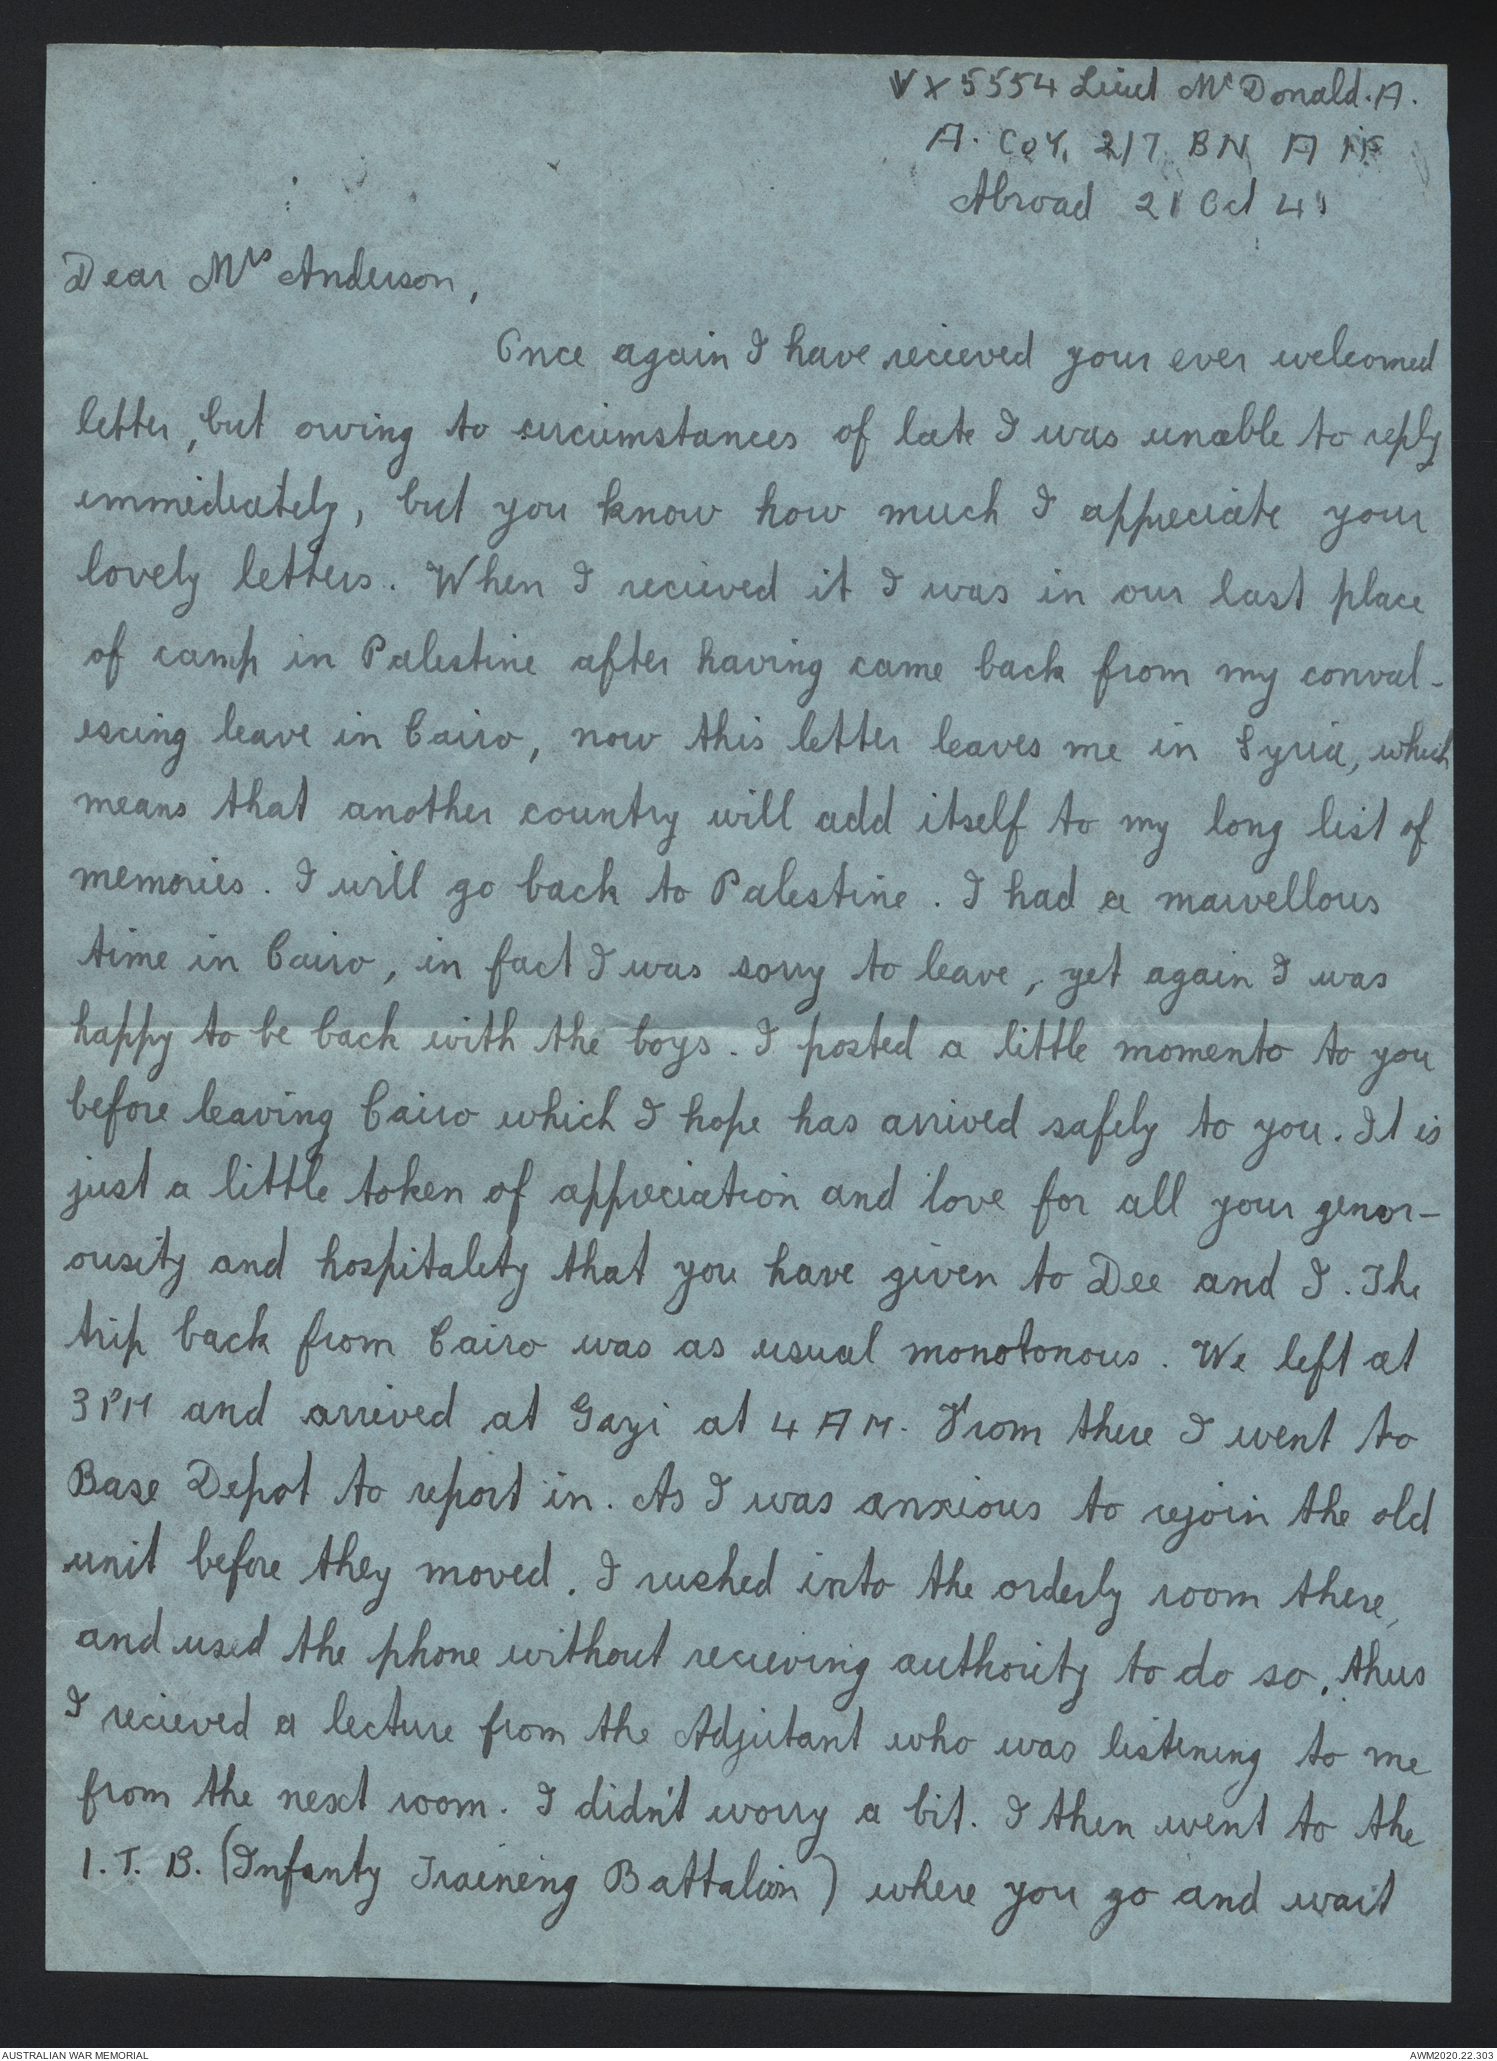 VX5554 Lieut McDonald. A.
A. Coy, 2/7 BN A IF
Abroad 21 Oct 41
Dear Mrs Anderson,
Once again I have recieved your ever welcomed
letter, but owing to circumstances of late I was unable to reply
immediately, but you know how much I appreciate your
lovely letters. When I recieved it I was in our last place
of camp in Palestine after having came back from my conval-
escing leave in Cairo, now this letter leaves me in Syria, which
means that another country will add itself to my long list of
memories. I will go back to Palestine. I had a marvellous
time in Cairo, in fact I was sorry to leave, yet again I was
happy to be back with the boys. I posted a little momento to you
before leaving Cairo which I hope has arrived safely to you. It is
just a little token of appreciation and love for all your genor-
ousity and hospitality that you have given to Dee and I. The
trip back from Cairo was as usual monotonous. We left at
3 PM and arrived at Gazi at 4 AM. From there I went to
Base Depot to report in. As I was anxious to rejoin the old
unit before they moved. I rushed into the orderly room there,
and used the phone without recieving authority to do so, thus
I recieved a lecture from the Adjutant who was listening to me
from the next room. I didn't worry a bit. I then went to the
I.T.B. (Infanty Training Battalion) where you go and wait
AUSTRALIAN WAR MEMORIAL
AWM2020.22.303